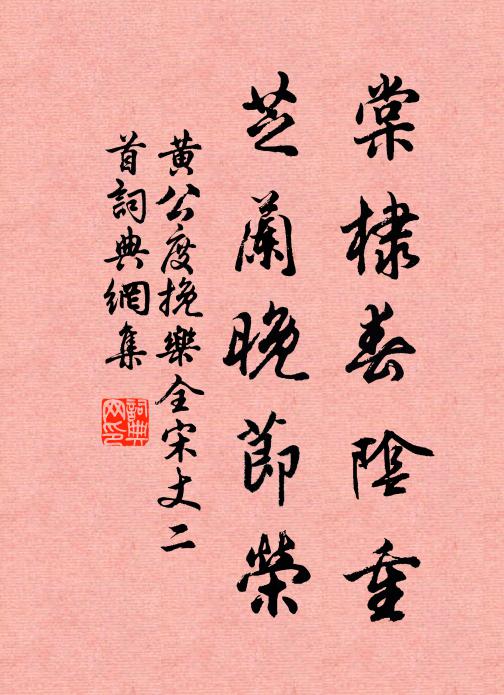 棠棣春陰重
芝蘭晚節榮
黃公度挽樂全宋丈二
首詞典網集
詞典
网印